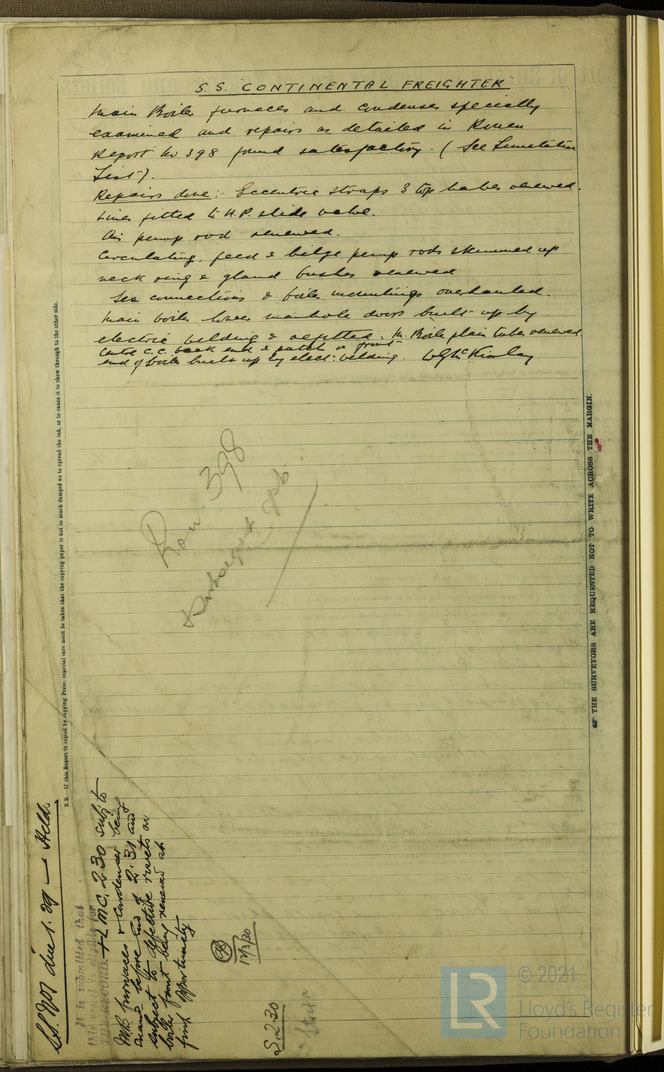 S.S. "CONTINENTAL FREIGHTER"
Main Boiler furnaces and condenser specially
examined and repairs as detailed in Rouen
Report No 398 found satisfactory. (See Limitation
List).
Repairs done: Eccentric straps 3 top halves renewed.
Liner fitted to H.P. slide valve.
Air pump rod renewed.
Circulating, feed & bilge pump rods skimmed up
neck ring & gland bushes renewed
Sea connections & boiler mountings overhauled.
Main boiler lower manhole doors built up by
electric welding & refitted. Boiler plain tubes renewed
Centre C.C. back end & patch front
end of boiler built up by elect: welding.
Rou. 398
N.B.—If this Report is copied by Copying Press, especial care must be taken that the copying paper is not so much damped as to spread the ink, or to cause it to show through to the other side.
THE SURVEYORS ARE REQUESTED NOT TO WRITE ACROSS THE MARGIN.
due 1.29 — Held.
It is submitted that
this vessel is eligible for
THE RECORD. + LMC. 2.30 subj: to
MB furnaces & condenser being
exam'd before end of 2.31 and
subject to defective rivets on
boiler front being renewed at
first opportunity
12/3/30
S. 2.30
© 2021
Lloyd's Register
Foundation
LR